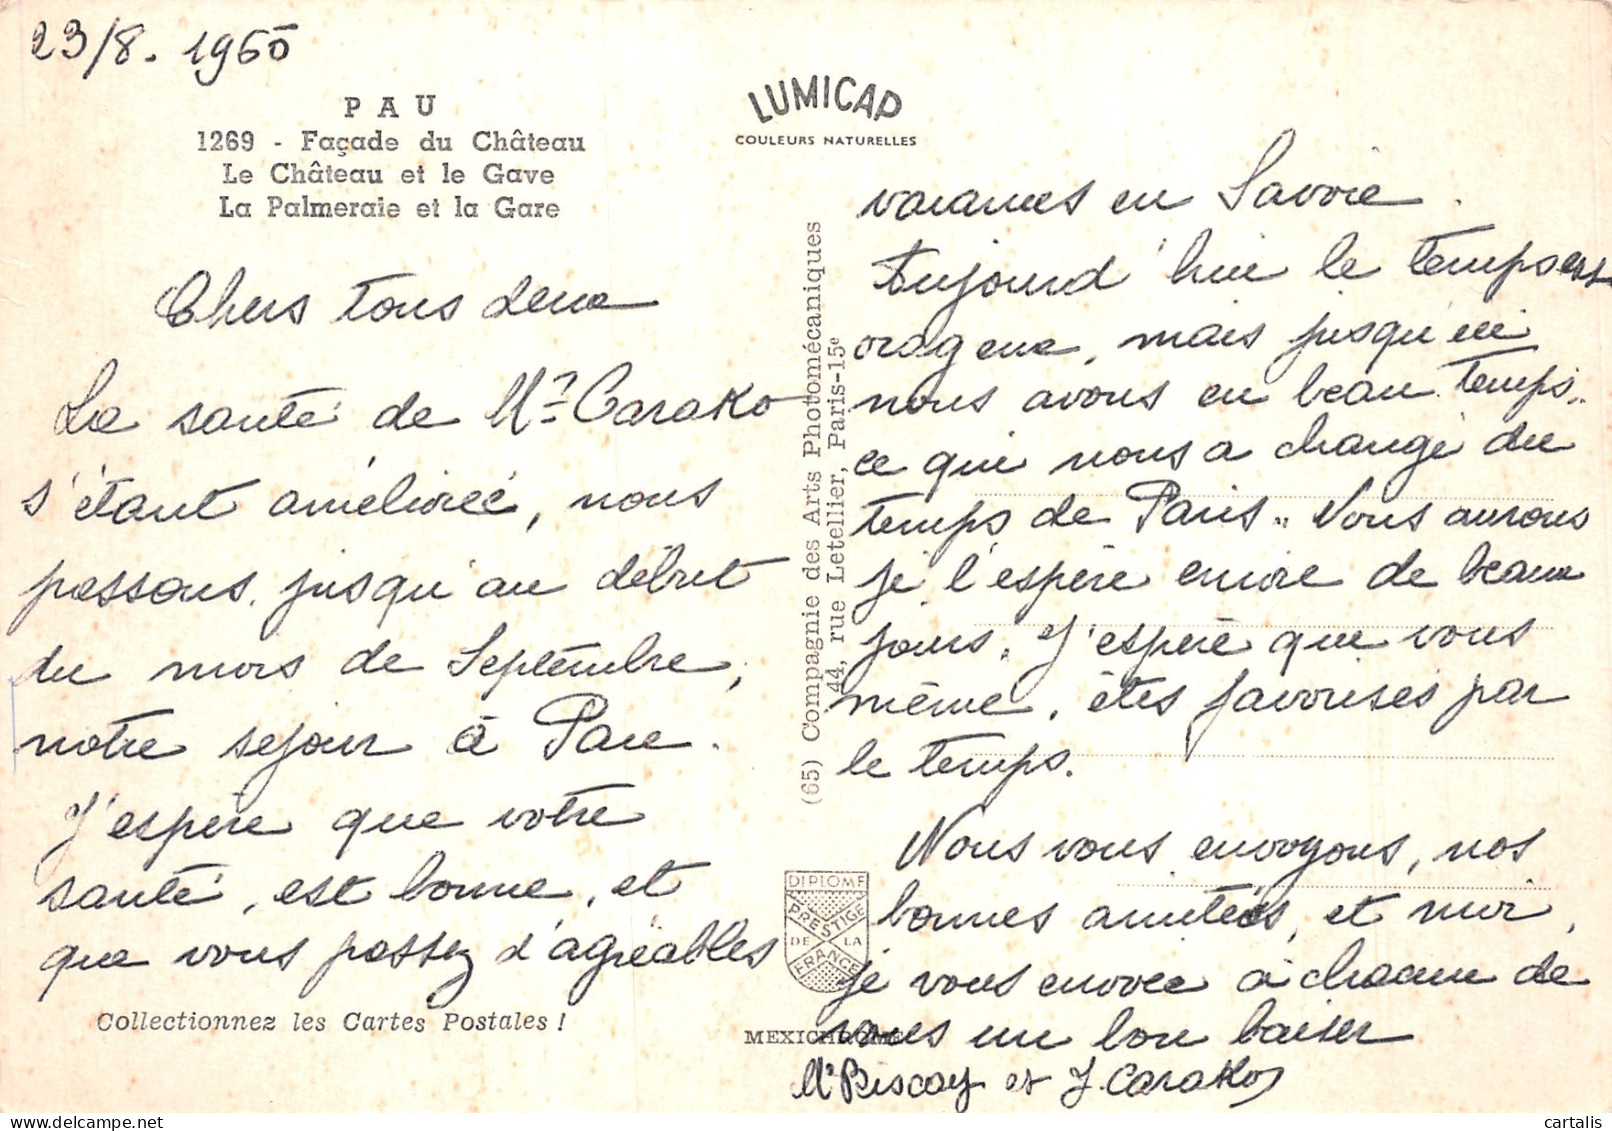 23/8. 1960
PAU
1269 - Façade du Château
Le Château et le Gave
La Palmeraie et la Gare
Chers tous deux
La santé de Mr Carako
s'étant améliorée, nous
passons, jusqu'au début
du mois de Septembre,
notre sejour à Pau.
J'espère que votre
santé, est bonne, et
que vous passez d'agréables
Collectionnez les Cartes Postales !
LUMICAP
COULEURS NATURELLES
(65) Compagnie des Arts Photomécaniques
44, rue Letellier, Paris-15e
DIPLOME
PRESTIGE
DE LA
FRANCE
MEXICHROME
vacances en Savoie.
Aujourd'hui le temps est
orageux, mais jusqu'ici
nous avons eu beau temps,
ce qui nous a changé du
temps de Paris. Nous aurons
je l'espère encore de beaux
jours. J'espère que vous
même, êtes favorisés par
le temps.
Nous vous envoyons, nos
bonnes amitiés, et moi,
je vous envoie à chacun de
vous un bon baiser
Biscay et J. Carako
cartalis